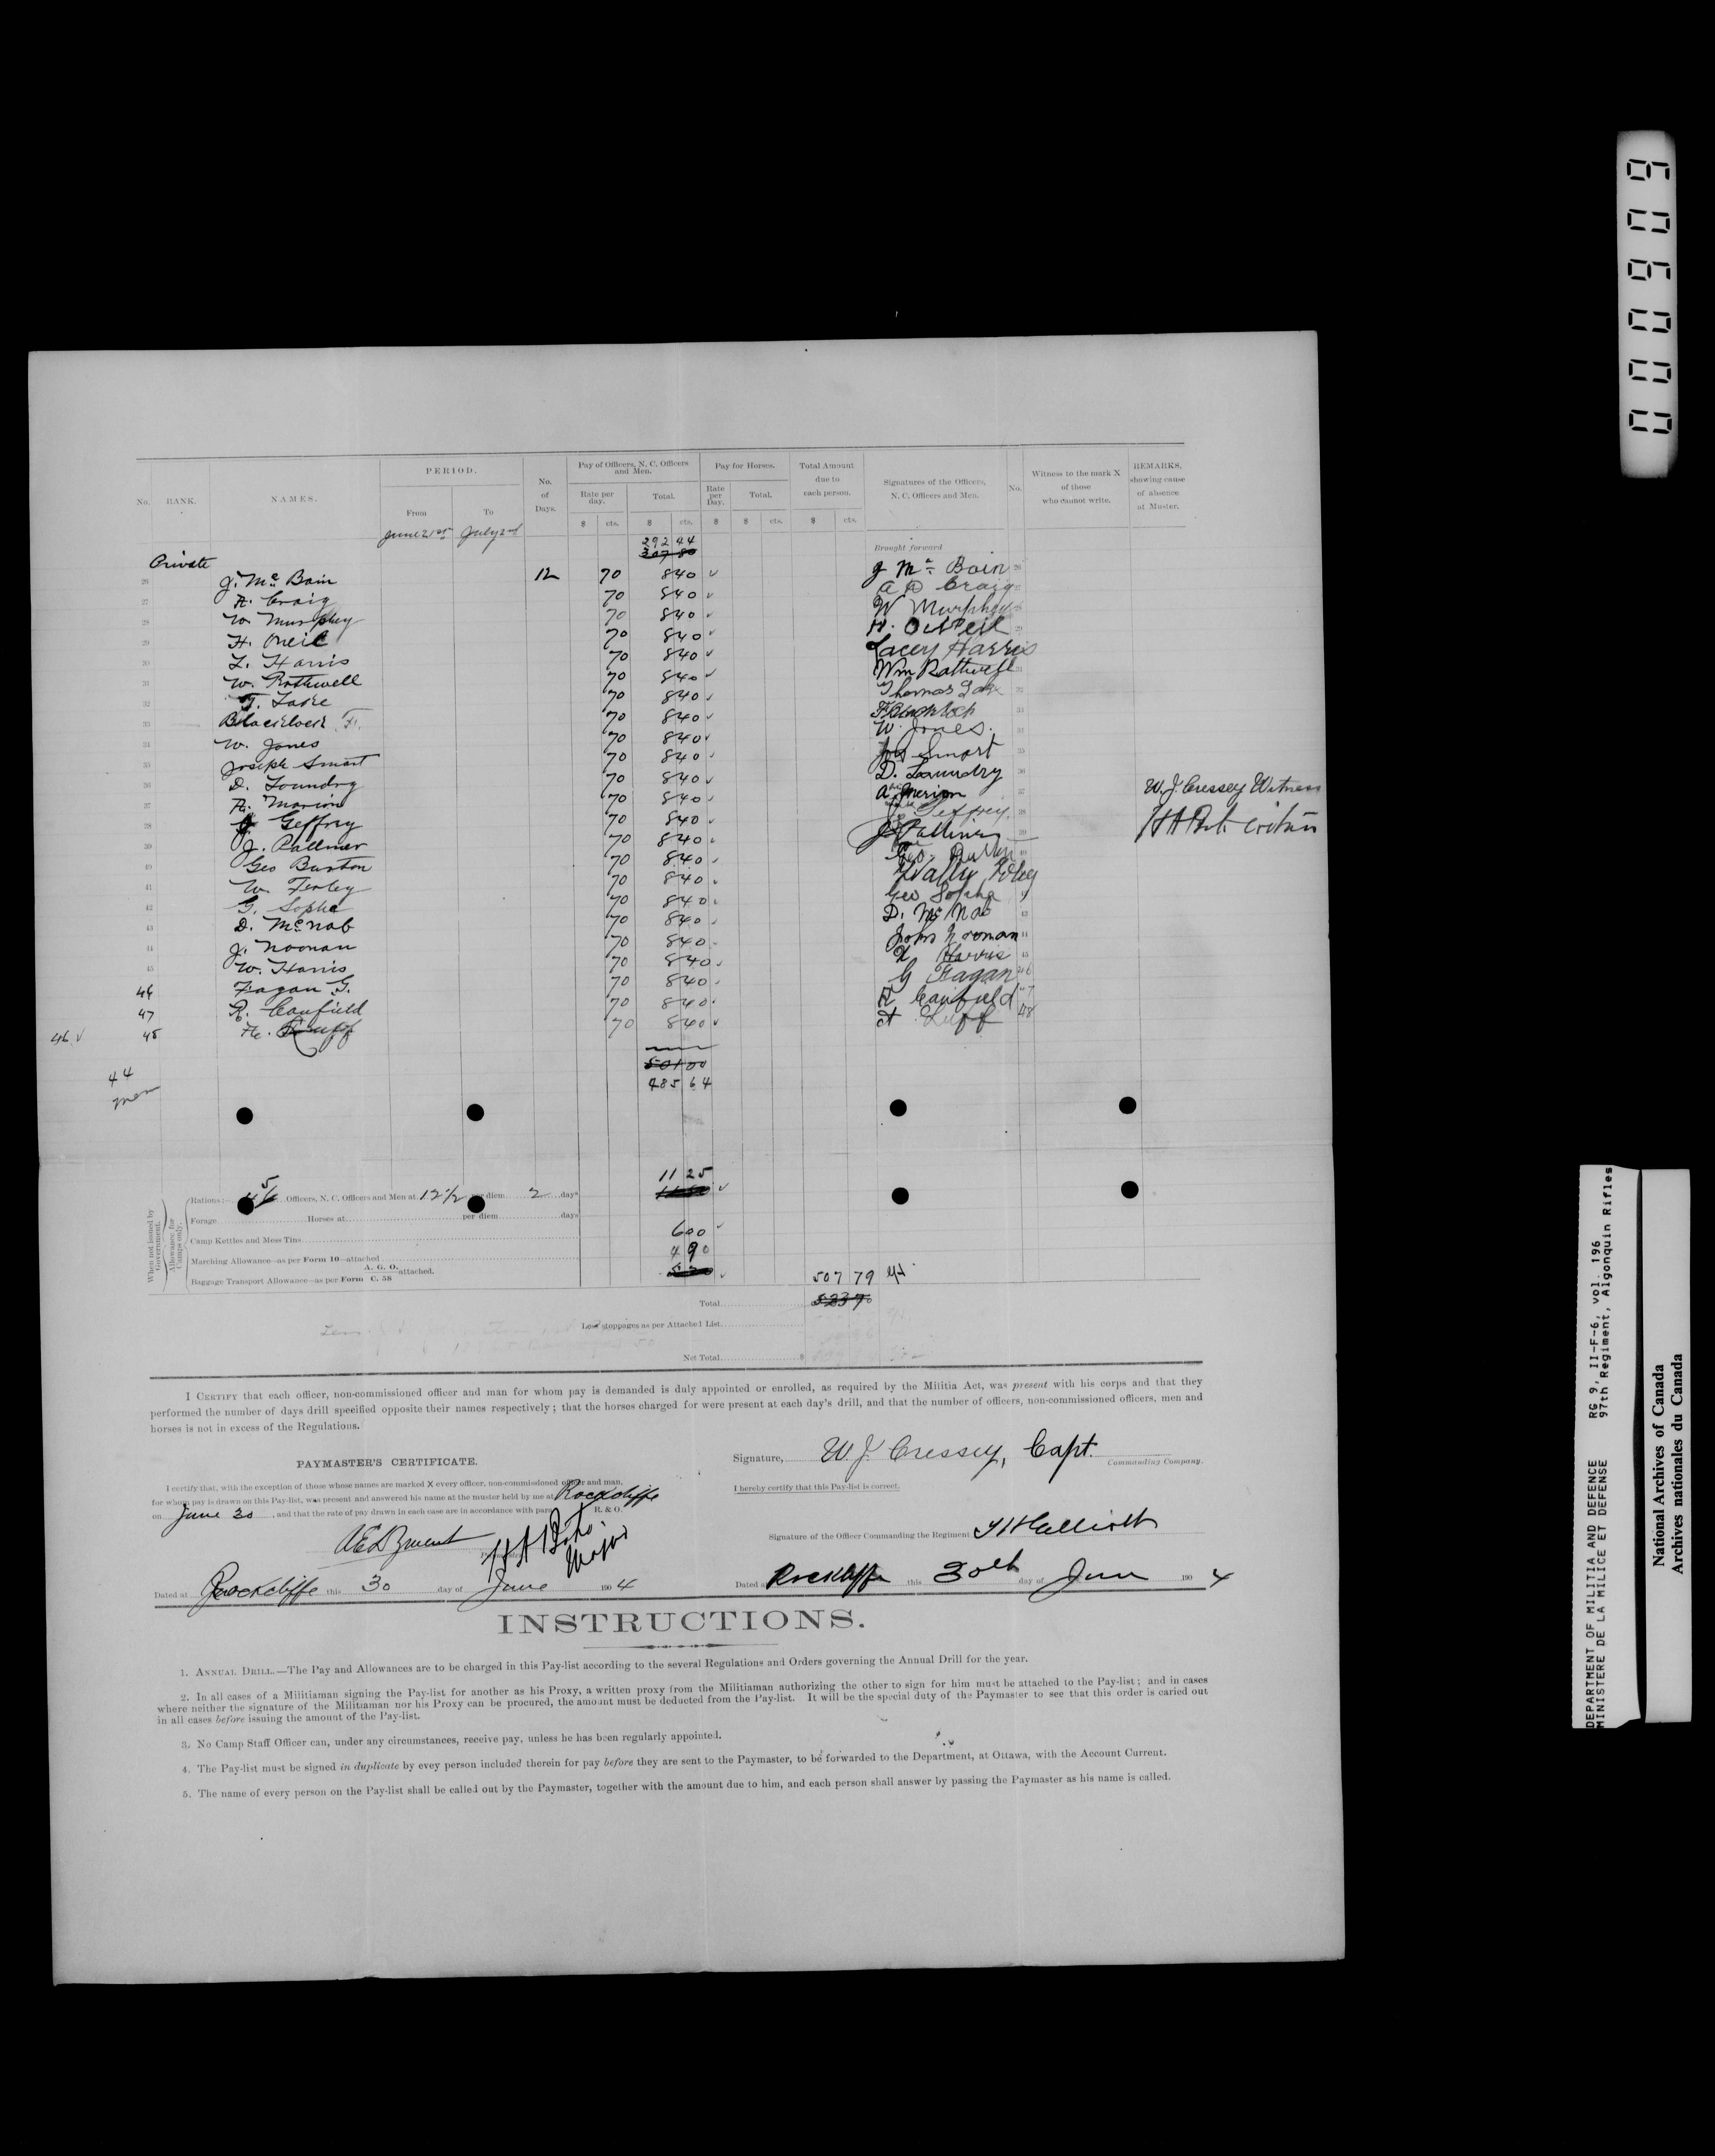 PERIOD.
Pay of Officers, N. C. Officers and Men.
Pay for Horses.
Total Amount due to each person.
Signatures of the Officers, N. C. Officers and Men.
No.
Witness to the mark X of those who cannot write.
REMARKS, showing cause of absence at Muster.
No. RANK. NAMES. From To No. of Days. Rate per day. Total. Rate per Day. Total.
$ cts. $ cts. $ $ cts. $ cts.
June 21st July 2nd
292 44
307 80 Brought forward
Private
26 J. McBain 12 70 8 40 J McBain 26
27 A. Craig 70 8 40 A D Craig
28 W. Murphey 70 8 40 W Murphey
29 H. Oneil 70 8 40 H. O'Neil 29
30 L. Harris 70 8 40 Lacey Harris
31 W. Rothwell 70 8 40 Wm Rothwell 31
32 T. Lake 70 8 40 Thomas 32
33 Blacklock F. 70 8 40 F Blacklock 33
34 W. Jones 70 8 40 W. Jones. 34
35 Joseph Smart 70 8 40 Jos Smart 35
36 D. Loundry 70 8 40 D. Laundry 36
37 A. Marion 70 8 40 A Merion 37 W. J. Cressey Witness
38 J. Geffrey 70 8 40 J. Geffrey. 38
39 J. Pallmer 70 8 40 J. Pallmer 39
40 Geo Burton 70 8 40 Geo. Burton 40
41 W. Ferley 70 8 40
42 G. Sopha 70 8 40 Geo Sopha
43 D. McNab 70 8 40 D. McNab 43
44 J. Noonan 70 8 40 John Noonan 44
45 W. Harris 70 8 40 W Harris 45
46 Fagan G. 70 8 40 G Fagan 46
47 R. Canfield 70 8 40 R Canfield 47
46 48 70 8 40 A Luff 48
501 00
44 men
485 64
11 25
When not issued by Government.
Allowance for Camps only.
Rations:— 45 Officers, N. C. Officers and Men at 12½ per diem 2 days
Forage Horses at per diem days
Camp Kettles and Mess Tins 6 00
Marching Allowance—as per Form 10—attached 4 90
Baggage Transport Allowance—as per Form A. G. O. C. 58 attached. 507 79
Total 523 70
Less stoppages as per Attached List
Net Total $
I CERTIFY that each officer, non-commissioned officer and man for whom pay is demanded is duly appointed or enrolled, as required by the Militia Act, was present with his corps and that they
performed the number of days drill specified opposite their names respectively; that the horses charged for were present at each day's drill, and that the number of officers, non-commissioned officers, men and
horses is not in excess of the Regulations.
PAYMASTER'S CERTIFICATE.
I certify that, with the exception of those whose names are marked X every officer, non-commissioned officer and man,
for whom pay is drawn on this Pay-list, was present and answered his name at the muster held by me at Rockcliffe
on June 30, and that the rate of pay drawn in each case are in accordance with para R. & O.
Major
Dated at Rockcliffe this 30 day of June 1904
Signature, W. J. Cressey, Capt. Commanding Company.
I hereby certify that this Pay-list is correct.
Signature of the Officer Commanding the Regiment
Dated at Rockcliffe this 30th day of June 1904
INSTRUCTIONS.
1. ANNUAL DRILL.—The Pay and Allowances are to be charged in this Pay-list according to the several Regulations and Orders governing the Annual Drill for the year.
2. In all cases of a Militiaman signing the Pay-list for another as his Proxy, a written proxy from the Militiaman authorizing the other to sign for him must be attached to the Pay-list; and in cases
where neither the signature of the Militiaman nor his Proxy can be procured, the amount must be deducted from the Pay-list. It will be the special duty of the Paymaster to see that this order is caried out
in all cases before issuing the amount of the Pay-list.
3. No Camp Staff Officer can, under any circumstances, receive pay, unless he has been regularly appointed.
4. The Pay-list must be signed in duplicate by evey person included therein for pay before they are sent to the Paymaster, to be forwarded to the Department, at Ottawa, with the Account Current.
5. The name of every person on the Pay-list shall be called out by the Paymaster, together with the amount due to him, and each person shall answer by passing the Paymaster as his name is called.
DEPARTMENT OF MILITIA AND DEFENCE RG 9, II-F-6, vol. 196
MINISTERE DE LA MILICE ET DEFENSE 97th Regiment, Algonquin Rifles
National Archives of Canada
Archives nationales du Canada